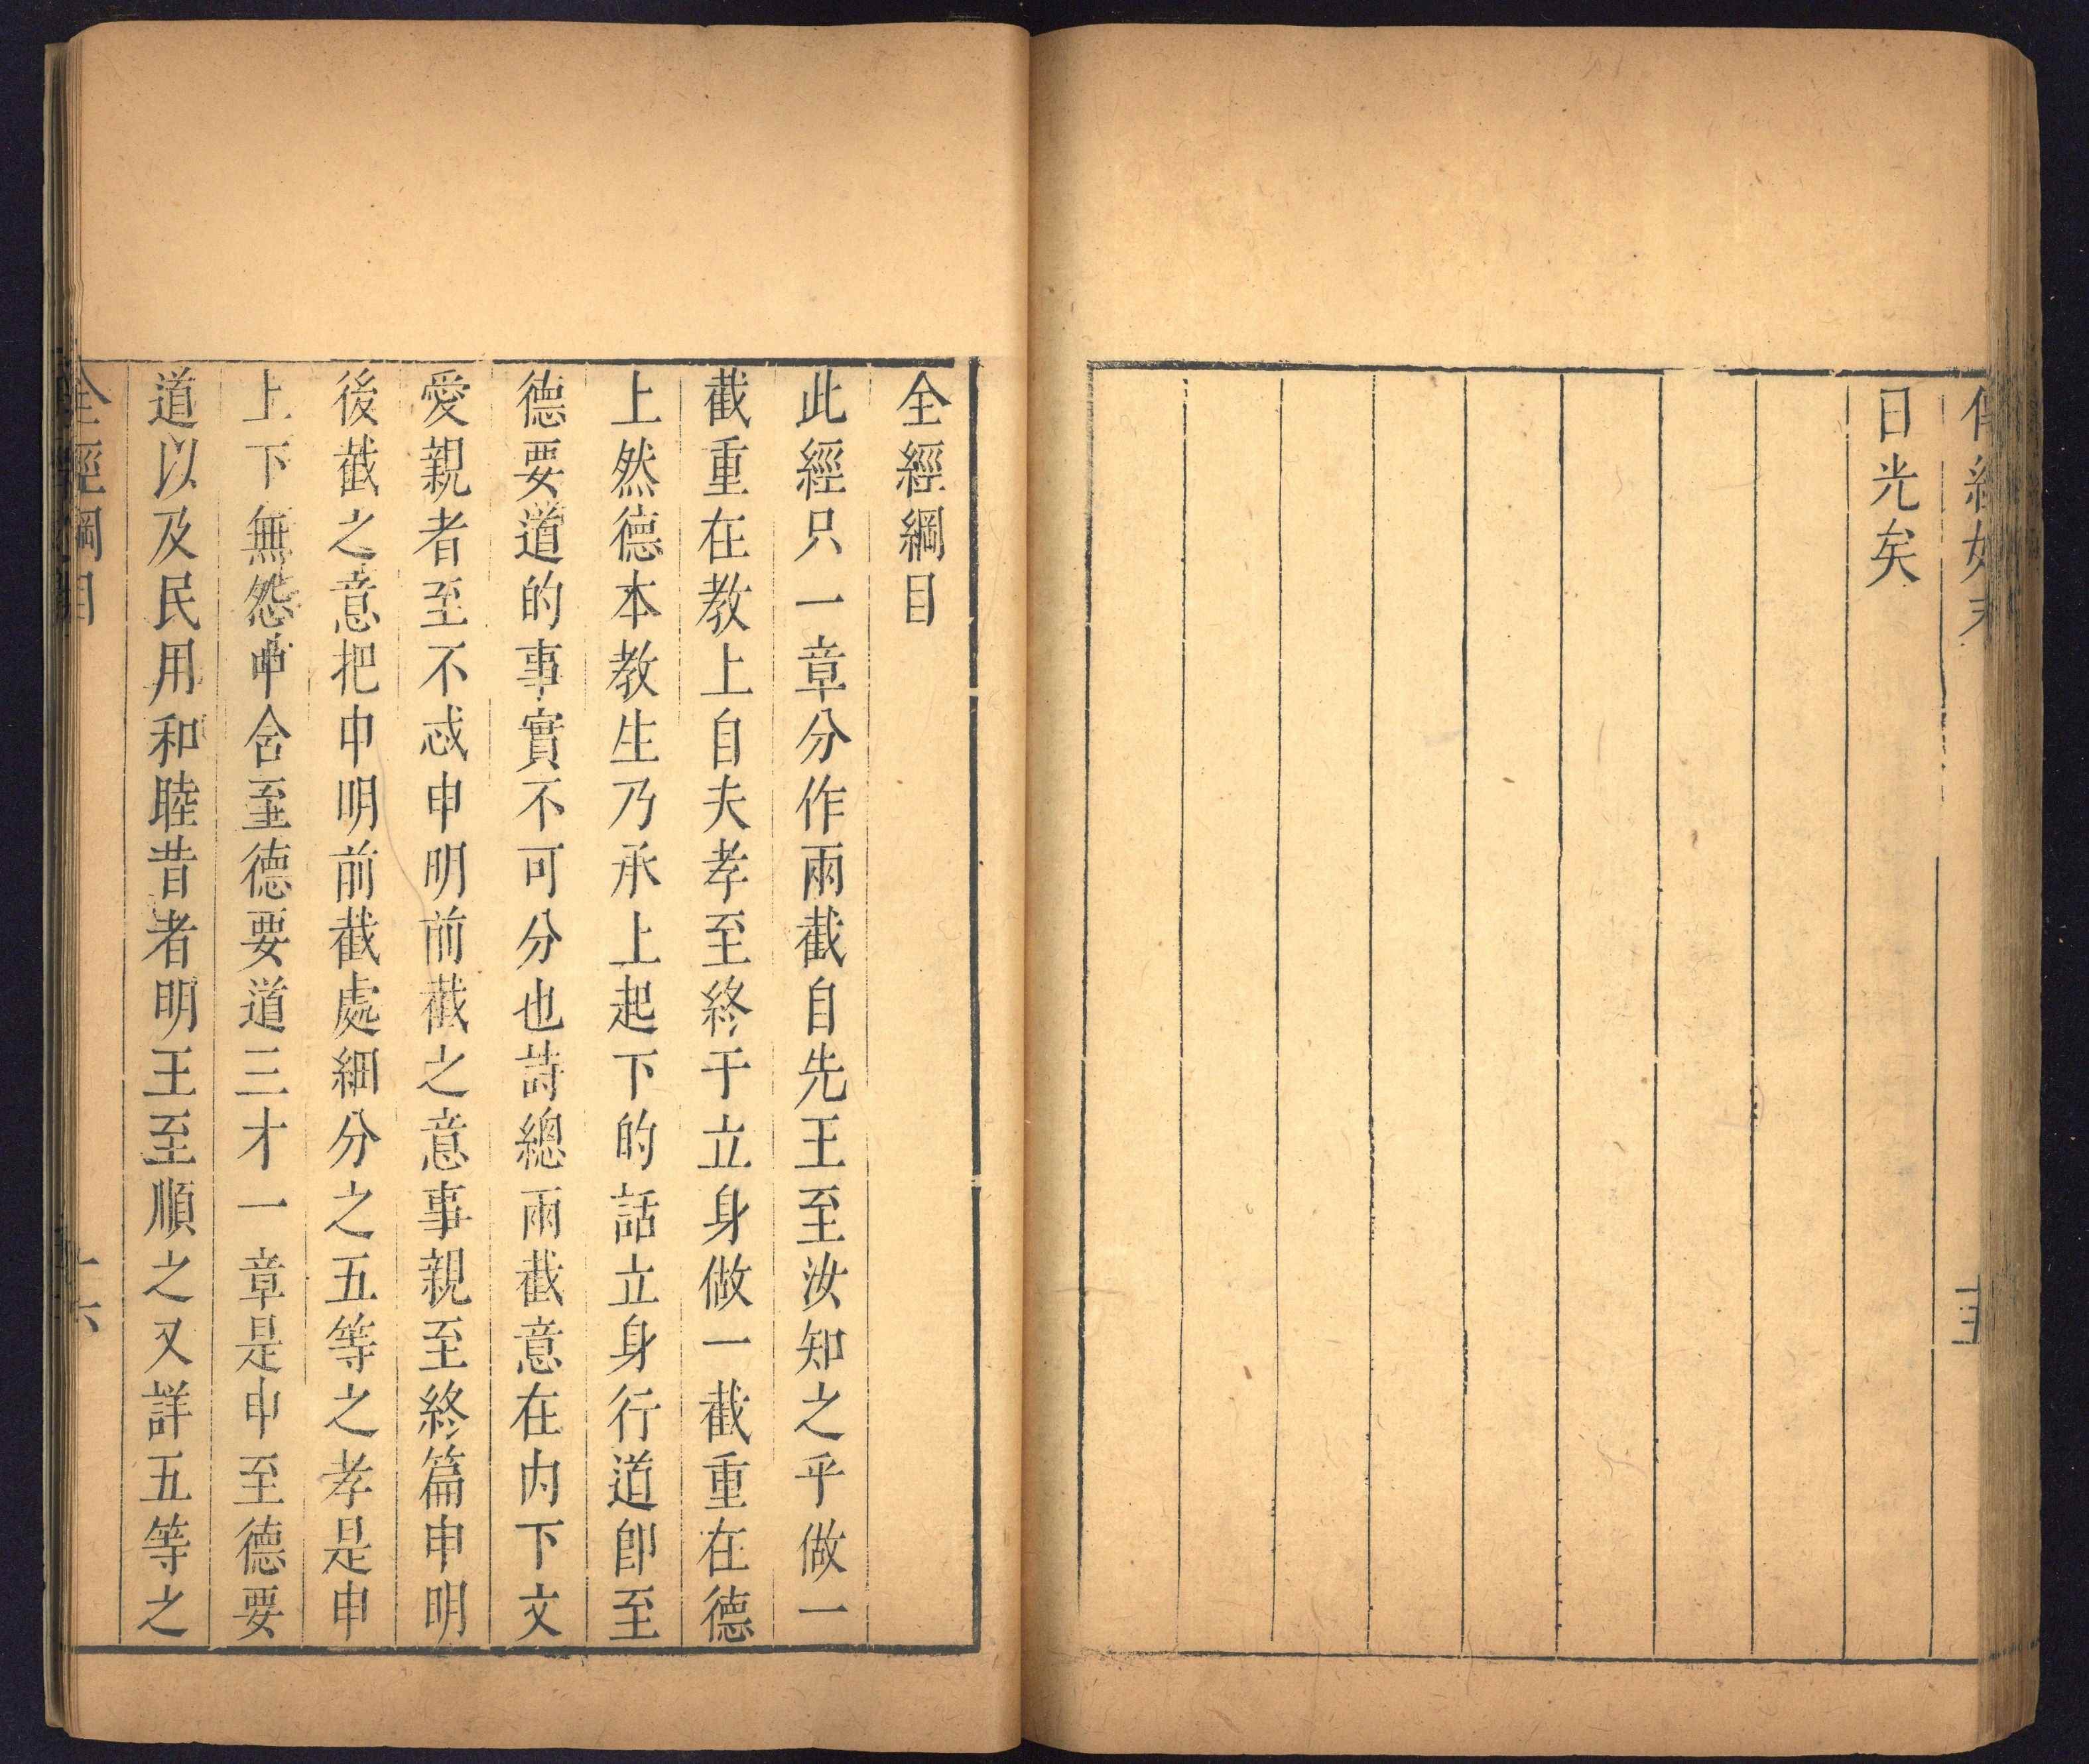 傳經始末
十五
日光矣
全經綱目
此經只一章分作兩截自先王至汝知之乎做一
截重在教上自夫孝至終于立身做一截重在德
上然德本教生乃承上起下的話立身行道卽至
德要道的事實不可分也詩總兩截意在内下文
愛親者至不忒申明前截之意事親至終篇申明
後截之意把申明前截處細分之五等之孝是申
上下無怨申舍至德要道三才一章是申至德要
道以及民用和睦昔者明王至順之又詳五等之
全經綱目
十六